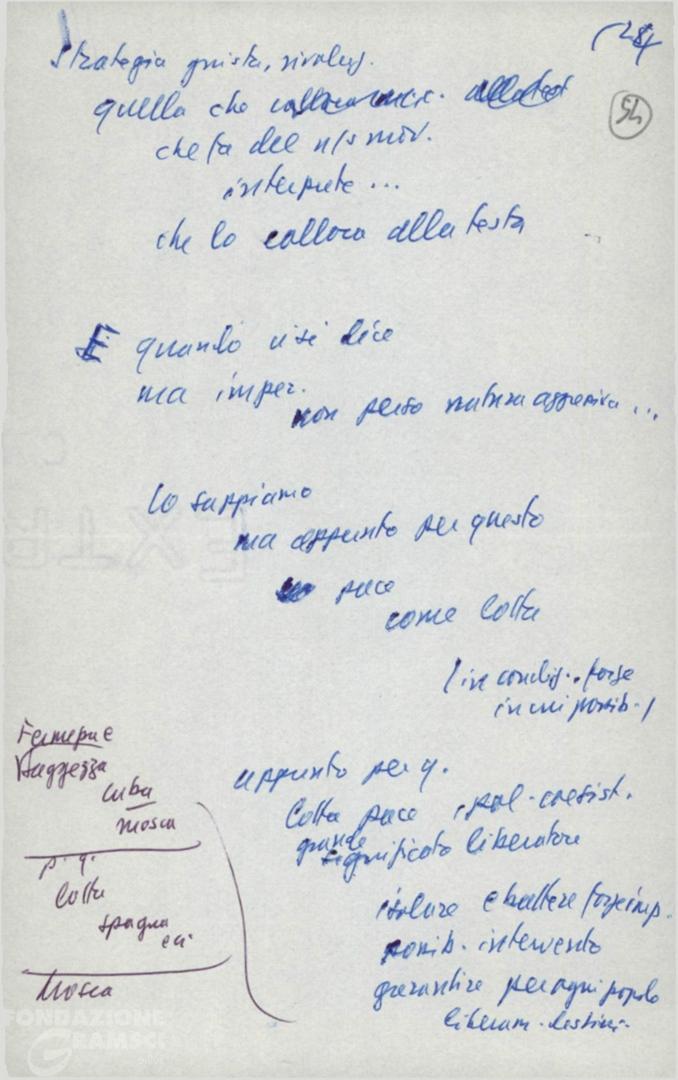 28
54
Strategia giusta, rivoluz.
quella che
che fa del n/s mov.
interprete ...
che lo colloca alla testa
E quando ci si dice
ma imper.
non perso natura aggressiva ...
lo sappiamo
ma appunto per questo
pace
come lotta
(in condiz. forze
in cui possib.)
appunto per q.
lotta pace, pol. coesist.
grande
significato liberatore
isolare e battere forze imp.
possib. intervento
garantire per ogni popolo
liberam. destini
Fermezza e
saggezza
Cuba
Mosca
p. q.
lotta
Spagna
ecc.
Mosca
FONDAZIONE
GRAMSCI